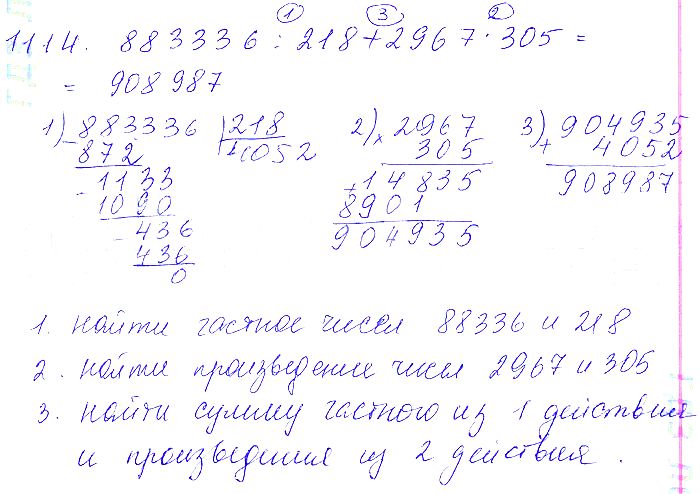 1 3 2
1114. 883336 : 218 + 2967 · 305 =
= 908987
1) 883336 | 218
- 872 4052
- 1133
1090
- 436
436
0
2) × 2967
305
+ 14835
8901
904935
3) + 904935
4052
908987
1. найти частное чисел 88336 и 218
2. найти произведение чисел 2967 и 305
3. найти сумму частного из 1 действия
и произведения из 2 действия.